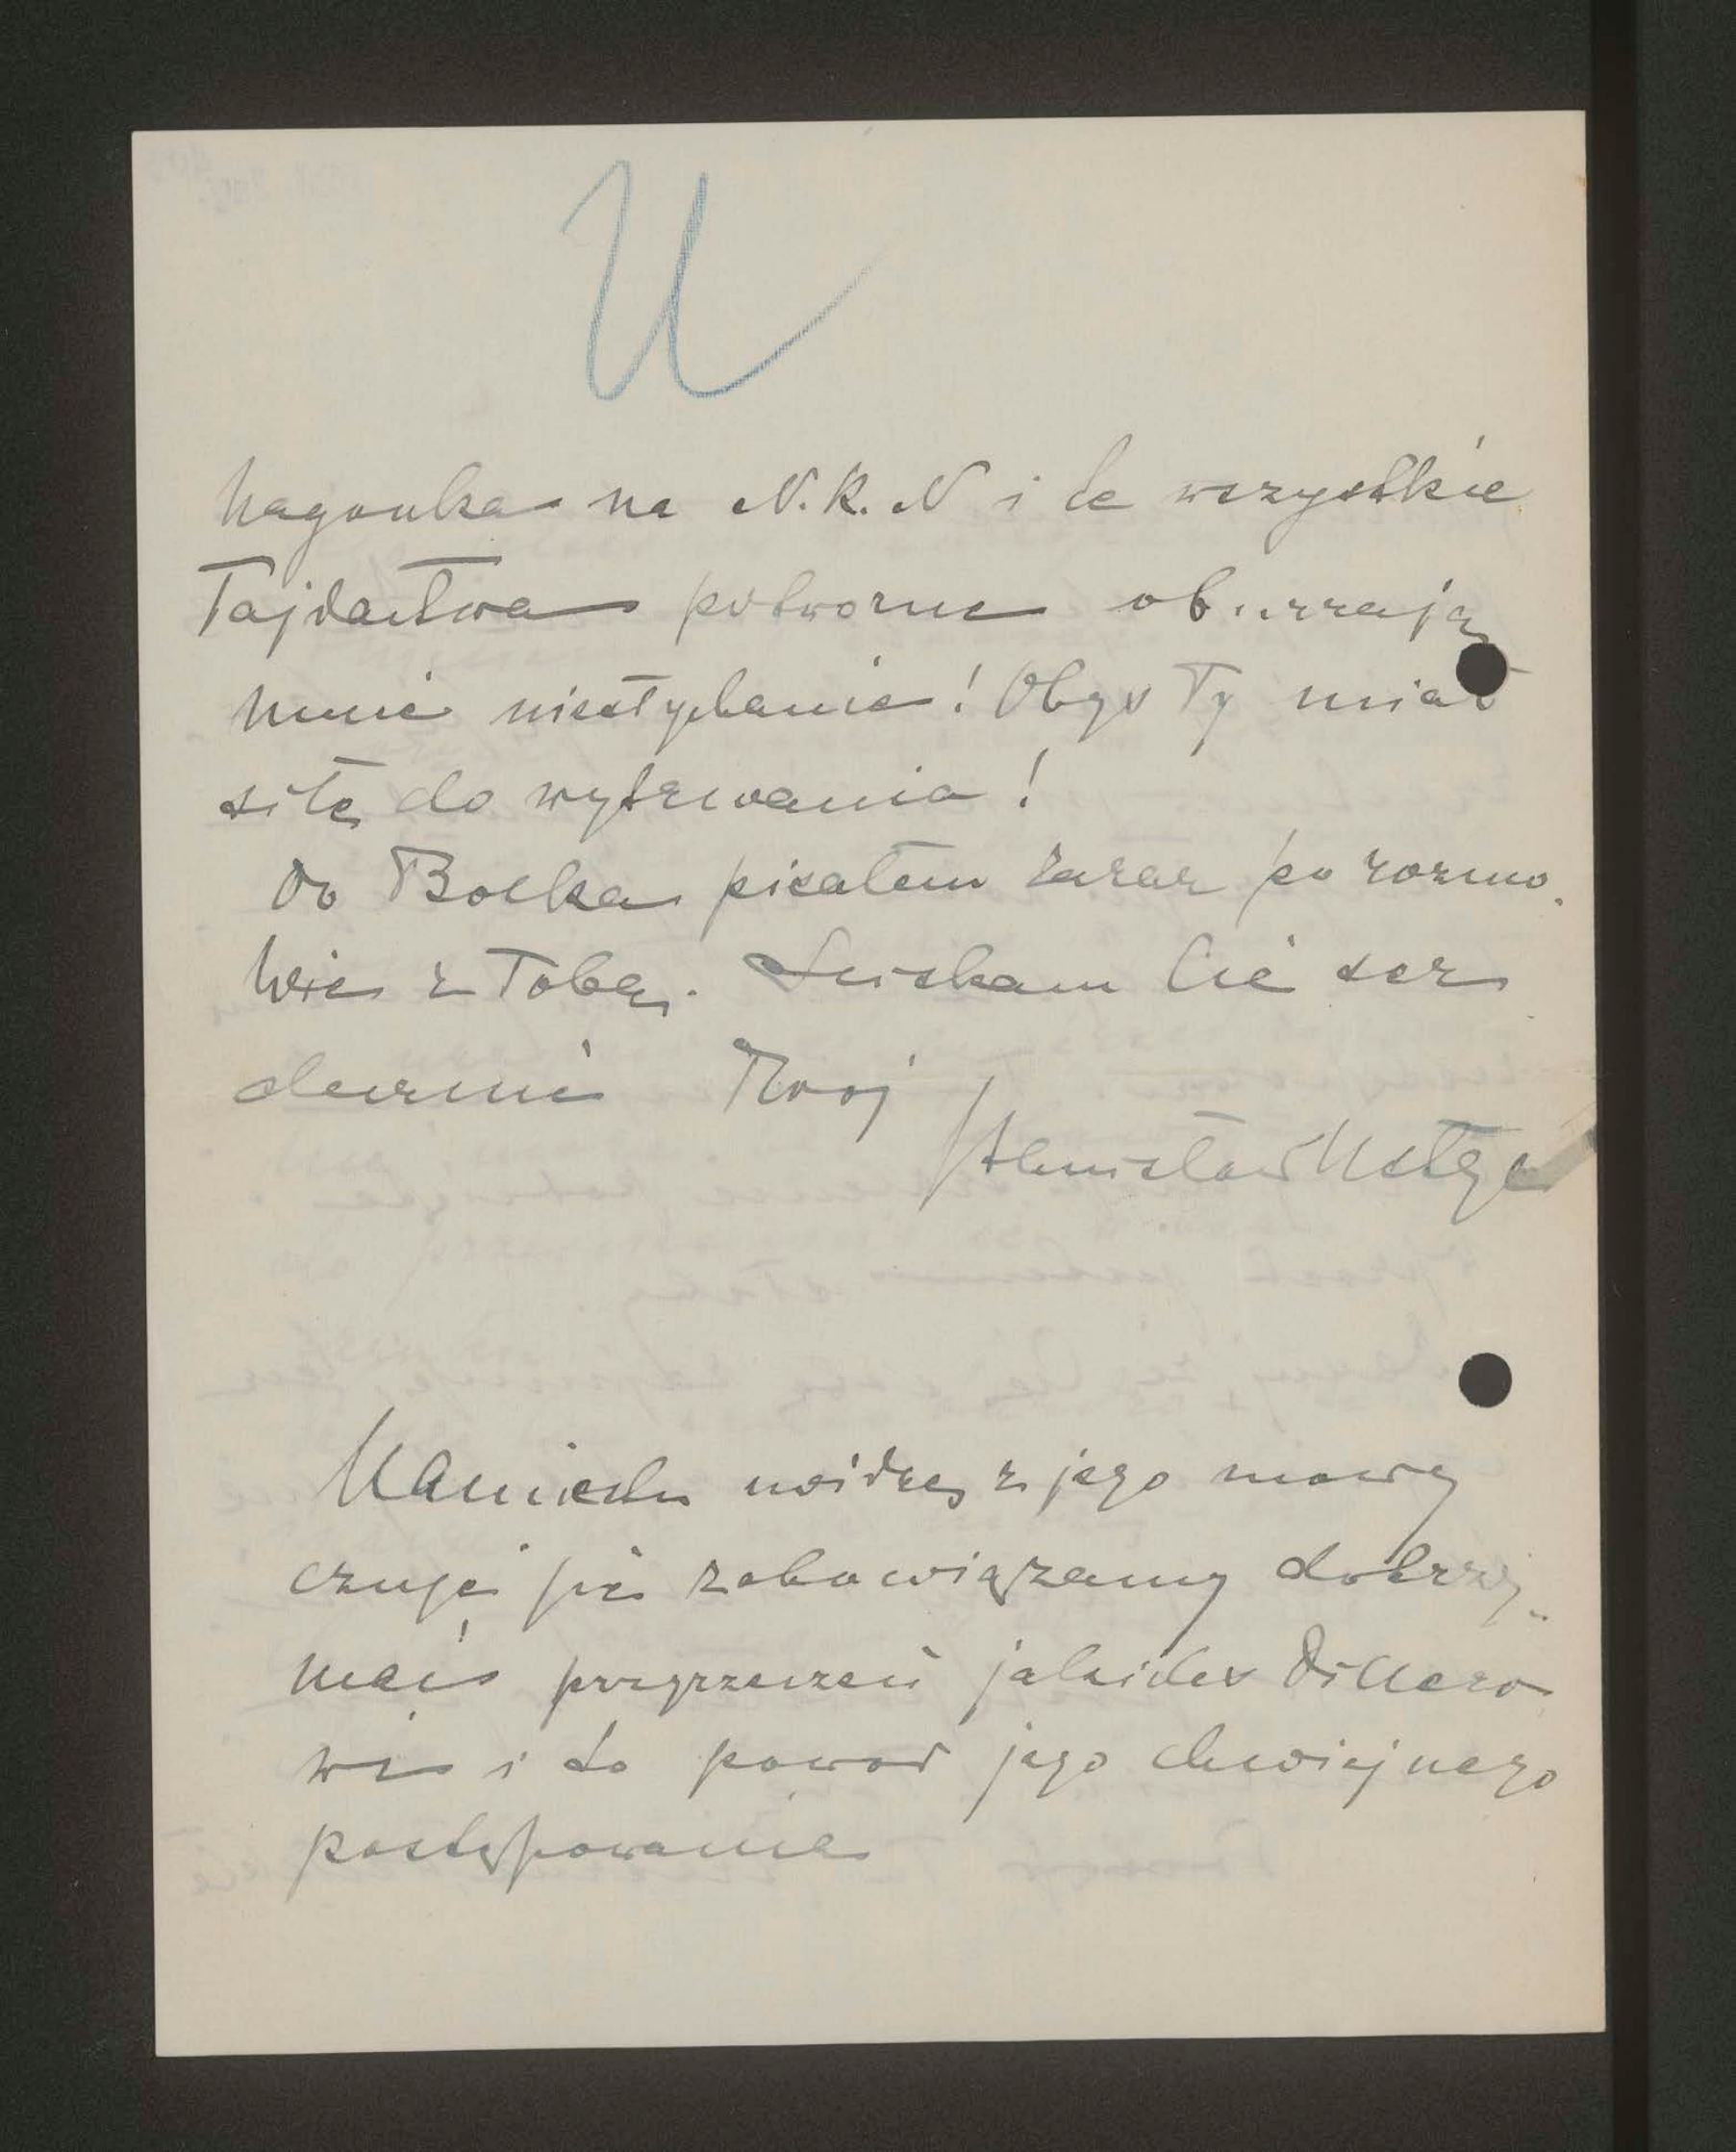 U
Nagonka na N.K.N i te wszystkie
łajdactwa potworne oburzają
mnie niesłychanie! Obyś Ty miał
siłę do wytrwania!
Do Bocka pisałem zaraz po rozmo-
wie z Tobą. Ściskam Cię ser
decznie Twój
Stanisław
widzę z jego mowy
czuje się zobowiązany dotrzy-
mać przyrzeczeń jakichś Dillero
wi i to powód jego chwiejnego
postępowania